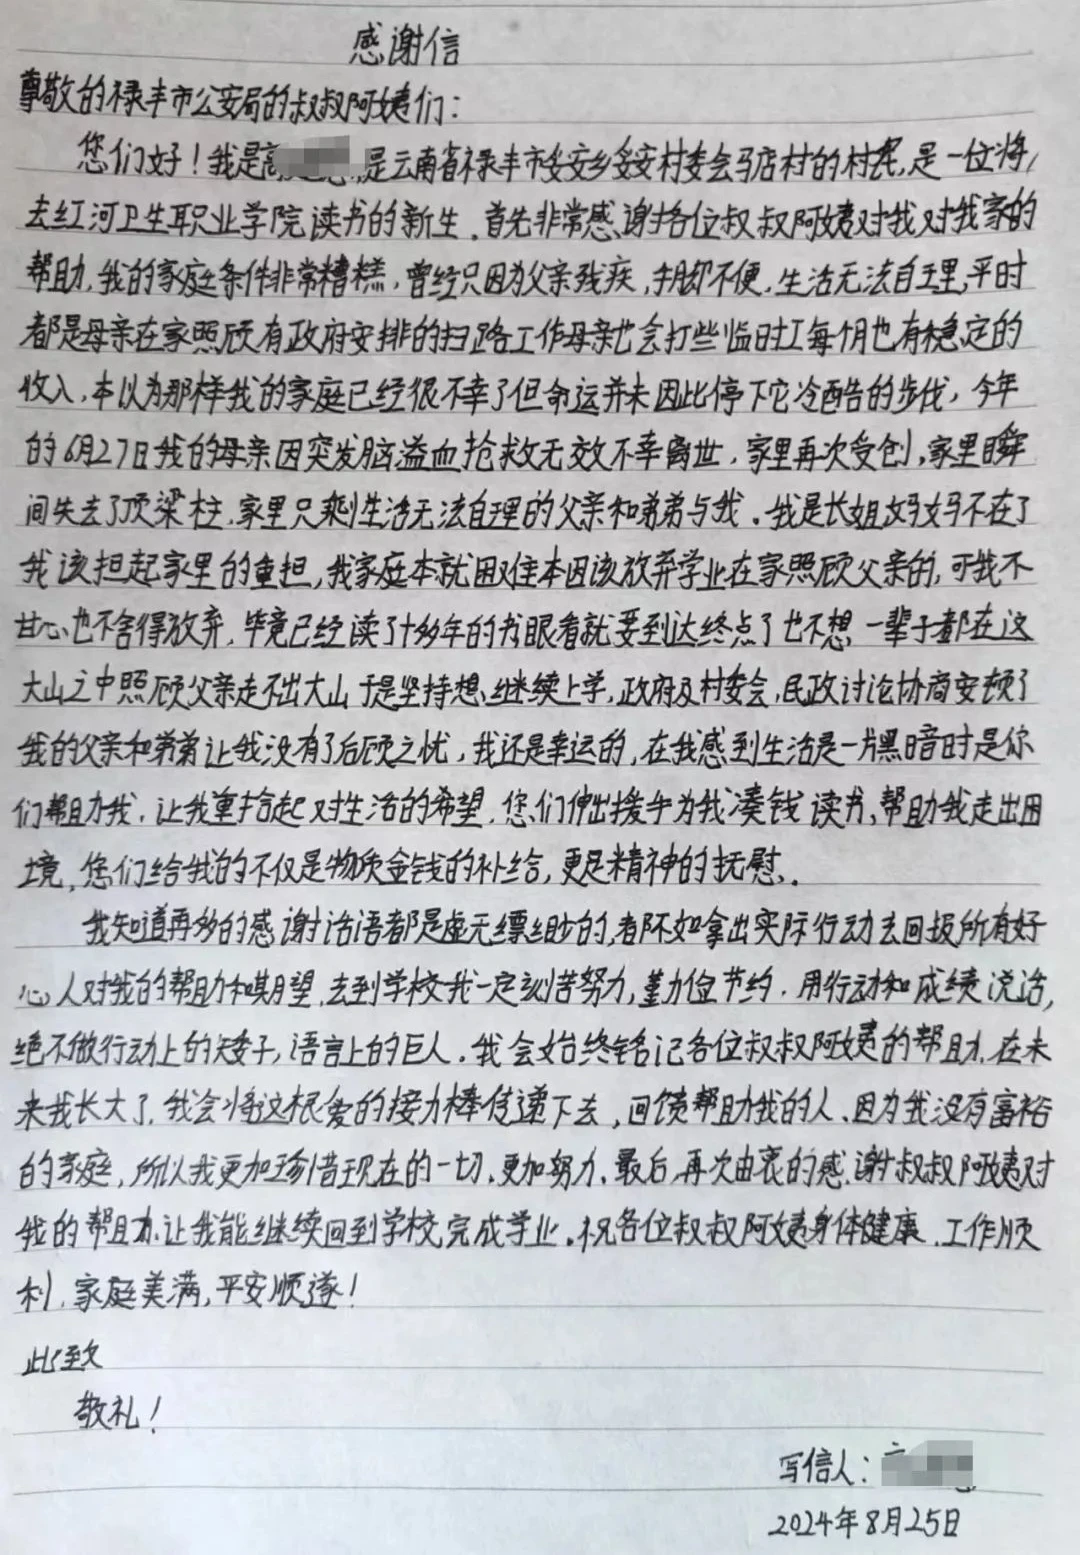 感谢信
尊敬的禄丰市公安局的叔叔阿姨们：
您们好！我是高 是云南省禄丰市妥安乡妥安村委会马店村的村民，是一位将
去红河卫生职业学院读书的新生。首先非常感谢各位叔叔阿姨对我对我家的
帮助，我的家庭条件非常糟糕，曾经只因为父亲残疾，手脚不便，生活无法自理，平时
都是母亲在家照顾有政府安排的扫路工作母亲也会打些临时工每个月也有稳定的
收入，本以为那样我的家庭已经很不幸了但命运并未因此停下它冷酷的步伐，今年
的6月27日我的母亲因突发脑溢血抢救无效不幸离世，家里再次受创，家里瞬
间失去了顶梁柱，家里只剩生活无法自理的父亲和弟弟与我。我是长姐妈妈不在了
我该担起家里的重担，我家庭本就困难本因该放弃学业在家照顾父亲的，可我不
甘心也不舍得放弃，毕竟已经读了十多年的书眼看就要到达终点了也不想一辈子都在这
大山之中照顾父亲走不出大山于是坚持想继续上学，政府及村委会，民政讨论协商安顿了
我的父亲和弟弟让我没有了后顾之忧，我还是幸运的，在我感到生活是一片黑暗时是你
们帮助我，让我重拾起对生活的希望，您们伸出援手为我凑钱读书，帮助我走出困
境，您们给我的不仅是物质金钱的补给，更是精神的抚慰。
我知道再多的感谢话语都是虚无缥缈的，都不如拿出实际行动去回报所有好
心人对我的帮助和期望，去到学校我一定刻苦努力，勤俭节约，用行动和成绩说话，
绝不做行动上的矮子，语言上的巨人。我会始终铭记各位叔叔阿姨的帮助，在未
来我长大了，我会将这根爱的接力棒传递下去，回馈帮助我的人、因为我没有富裕
的家庭，所以我更加珍惜现在的一切，更加努力、最后，再次由衷的感谢叔叔阿姨对
我的帮助，让我能继续回到学校完成学业。祝各位叔叔阿姨身体健康，工作顺
利，家庭美满，平安顺遂！
此致
敬礼！
写信人：
2024年8月25日